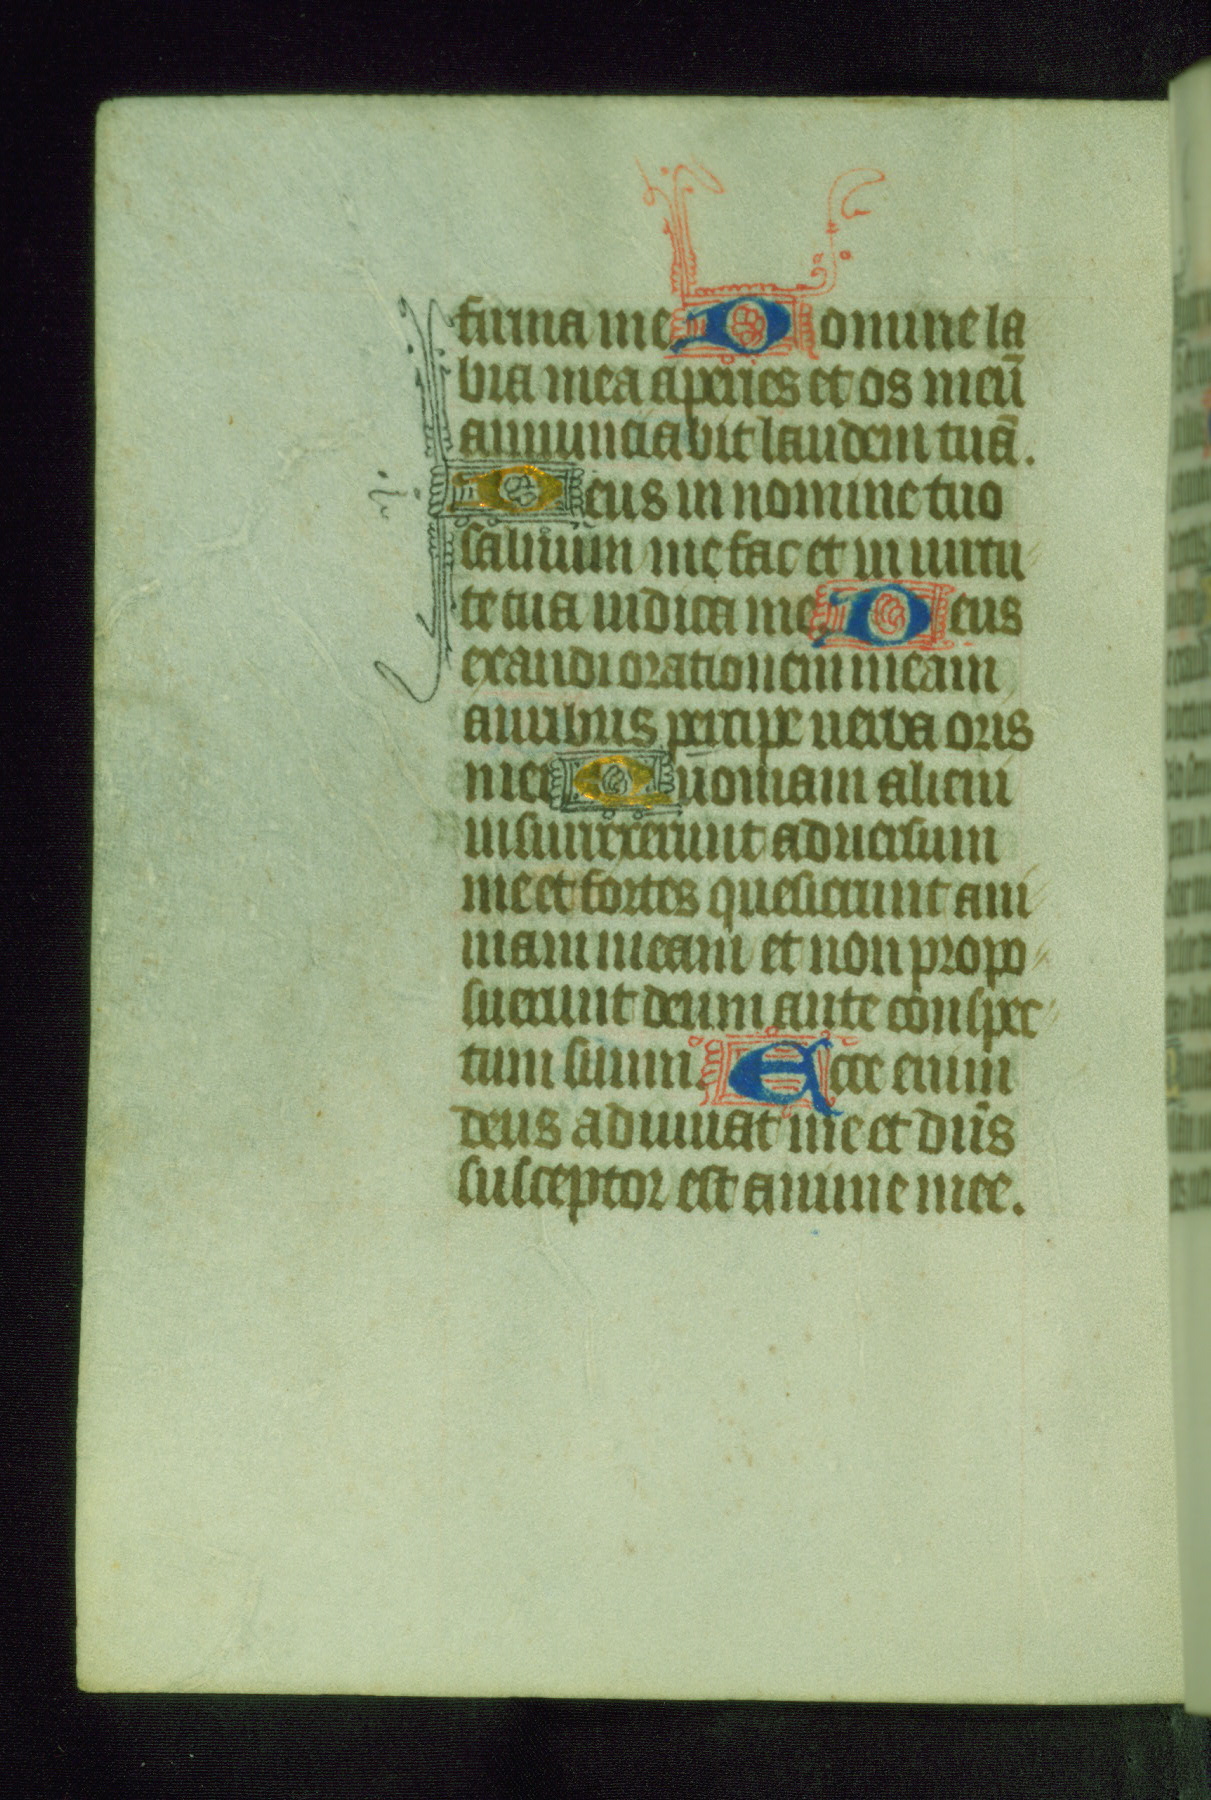 firma me Domine la
bra mea aperies et os meū
annunciabit laudem tuā.
Deus in nomine tuo
saluum me fac et in uirtu
te tua iudica me Deus
exaudi orationem meam
auribus percipe uerba oris
mei Quoniam alieni
insurrexerunt aduersum
me et fortes quesierunt ani
mam meam et non propo
suerunt deum ante conspec
tum suum. Ecce enim
deus adiuuat me et dn̄s
susceptor est anime mee.